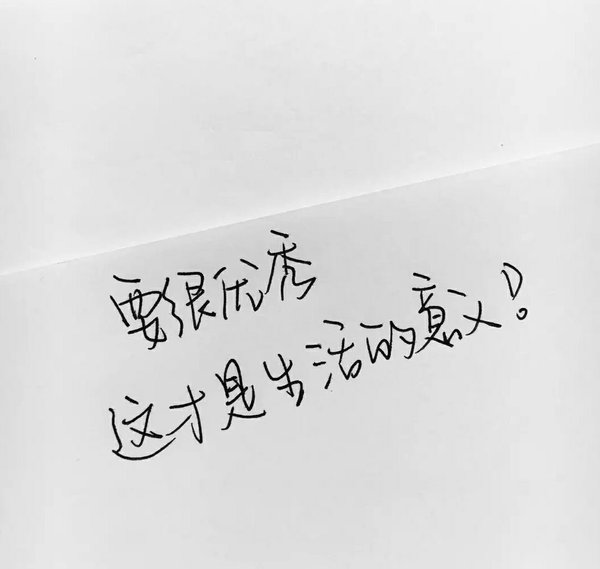 要很优秀
这才是生活的意义!